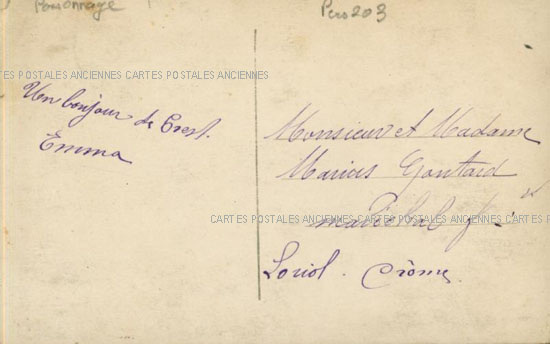 Personnage
Pers 203
CARTES POSTALES ANCIENNES CARTES POSTALES ANCIENNES
Un bonjour de Crest.
Emma
Monsieur et Madame
Marius Gontard
maréchal
CARTES POSTALES ANCIENNES CARTES POSTALES ANCIENNES
Loriol. Drôme